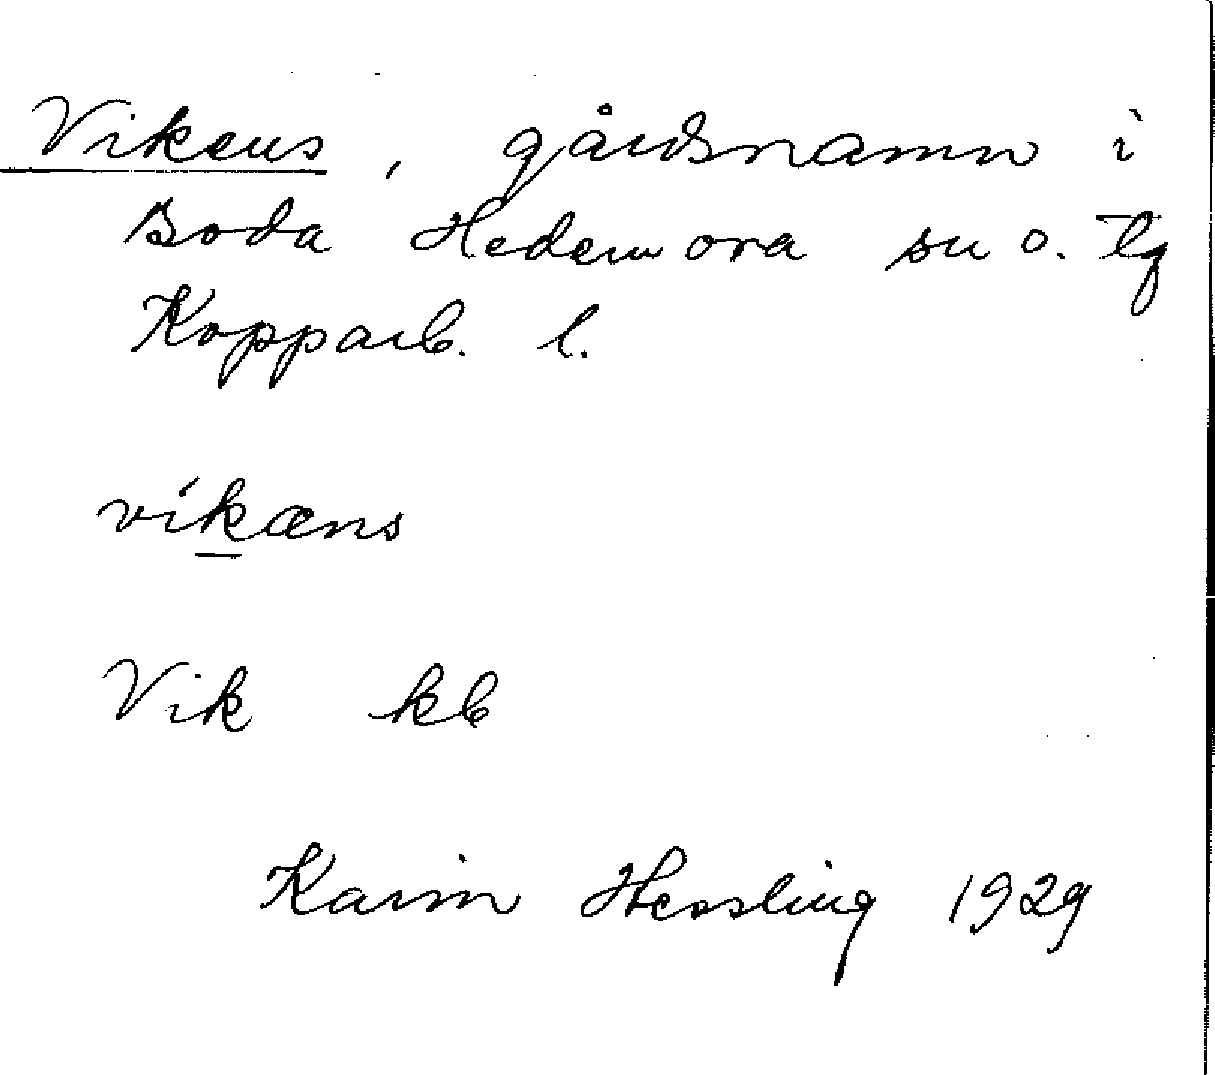 Vikens, gårdsnamn i
Boda Hedemora sn o. tg
Kopparb. l.
víkæns
Vik kb
Karin Hessling 1929